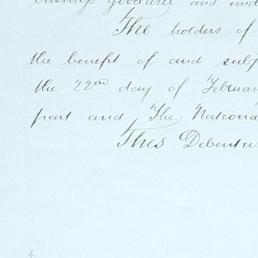 goodwill and und
The holders of
the benefit of and subj
the 22nd day of Februar
part and The Nationa
This Debentu